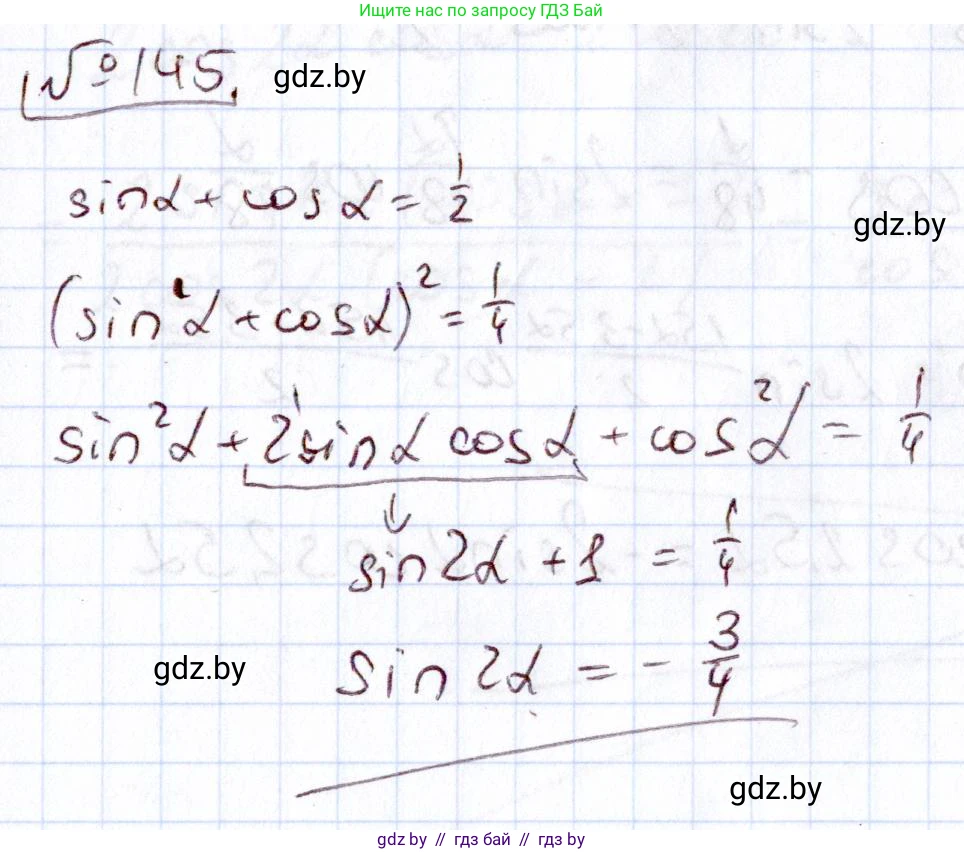 Ищите нас по запросу ГДЗ Бай
№ 145. gdz.by
sinα + cosα = 1/2
gdz.by
(sin α + cosα)² = 1/4
sin²α + 2sinα cosα + cos²α = 1/4
↓
sin2α + 1 = 1/4
sin2α = - 3/4
gdz.by
gdz.by
gdz.by // гдз бай // gdz.by